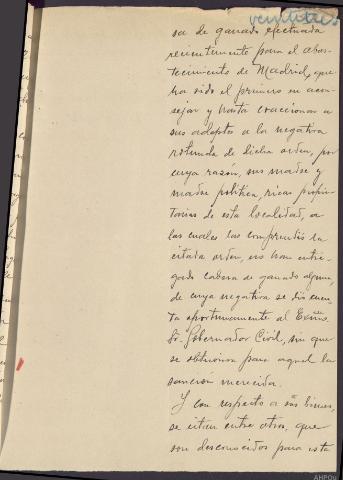 veintitrés
sa de ganado efectuada
recientemente para el abas-
tecimiento de Madrid, que
ha sido el primero en acon-
sejar y hasta coaccionar a
sus adeptos a la negativa
rotunda de dicha orden, por
cuya razón, sus madre y
madre política, ricas propie-
tarias de esta localidad, a
las cuales las comprendió la
citada orden, no han entre-
gado cabeza de ganado alguna,
de cuya negativa se dió cuen-
ta oportunamente al Exmo.
Sr. Gobernador Civil, sin que
se obtuviera para aquel la
sanción merecida.
Y con respecto a sus bienes,
se citan entre otros, que
son desconocidos para esta
AHPOu